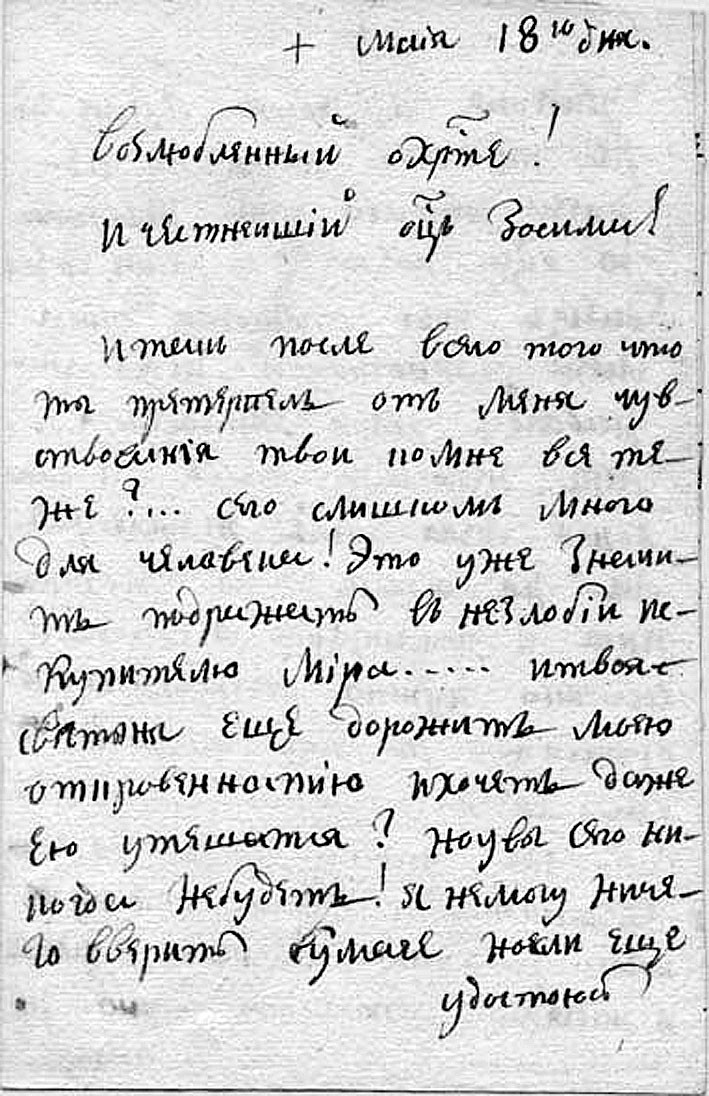 + Маія 18го дня.
Возлюбленный охр҃те!
И честнейшій оц҃ъ Зосима!
И темъ после всего того что
ты претерпелъ отъ меня чув-
ствованія твои помне все те-
же?... сего слишкомъ много
для человека! Это уже Значи-
тъ подражать въ незлобіи ис-
купителю Міра...... итвоя
святыня еще дорожитъ моею
откровенностію ихочетъ даже
Ею утешатся? ноувы сего ни-
когда небудетъ! я немогу ниче-
го вверить бумаге ноели еще
удостоюсь